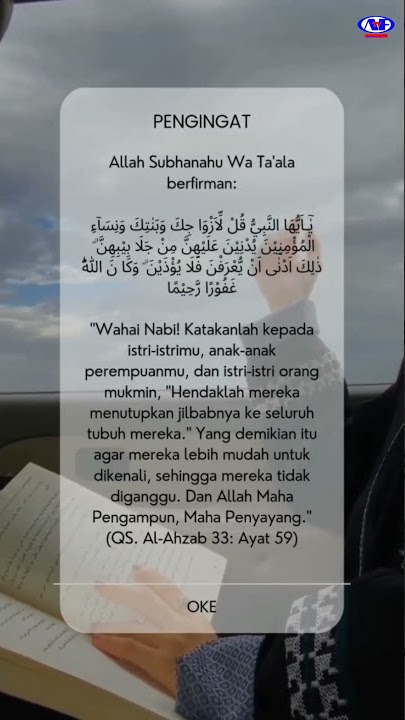 PENGINGAT
Allah Subhanahu Wa Ta'ala
berfirman:
يٰۤـاَيُّهَا النَّبِيُّ قُلْ لِّاَزْوَا جِكَ وَبَنٰتِكَ وَنِسَآءِ
الْمُؤْمِنِيْنَ يُدْنِيْنَ عَلَيْهِنَّ مِنْ جَلَا بِيْبِهِنَّ ۗ
ذٰلِكَ اَدْنٰۤى اَنْ يُّعْرَفْنَ فَلَا يُؤْذَيْنَ ۗ وَكَا نَ اللّٰهُ
غَفُوْرًا رَّحِيْمًا
"Wahai Nabi! Katakanlah kepada
istri-istrimu, anak-anak
perempuanmu, dan istri-istri orang
mukmin, "Hendaklah mereka
menutupkan jilbabnya ke seluruh
tubuh mereka." Yang demikian itu
agar mereka lebih mudah untuk
dikenali, sehingga mereka tidak
diganggu. Dan Allah Maha
Pengampun, Maha Penyayang."
(QS. Al-Ahzab 33: Ayat 59)
OKE